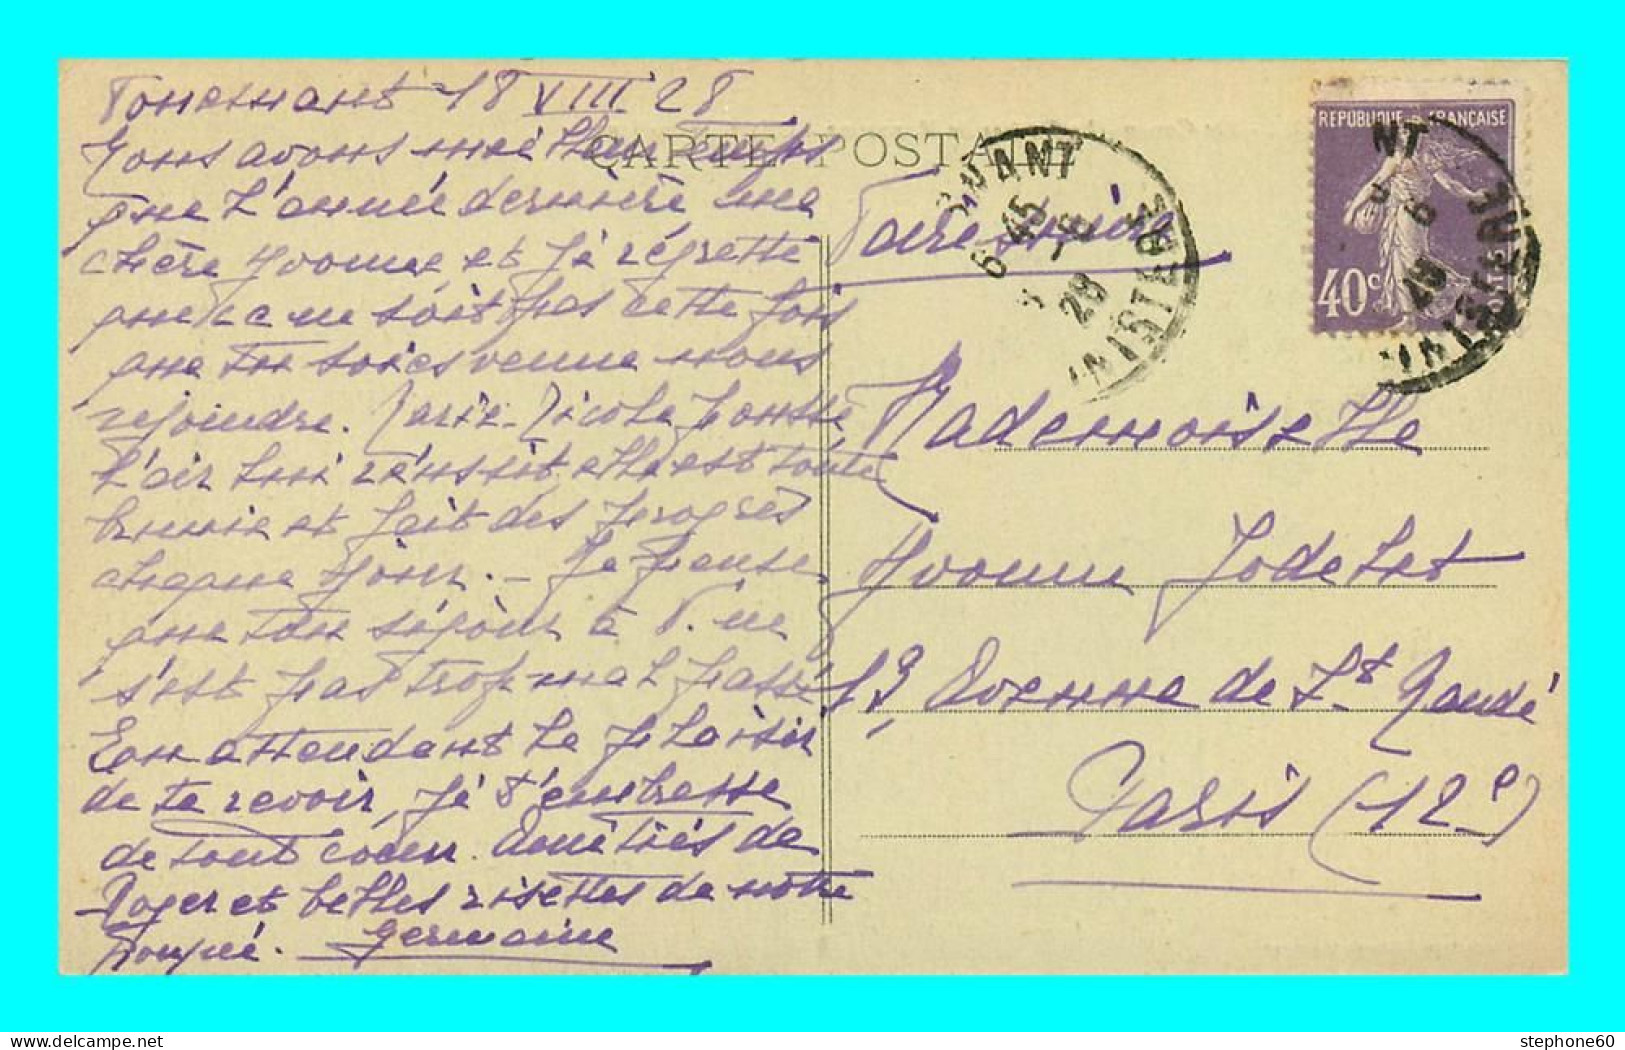 18 VIII 28
Nous avons meilleur temps
que l'année dernière ma
chère Yvonne et je regrette
que ce ne soit pas cette fois
que tu soies venue nous
rejoindre. Marie-Nicole pousse
l'air lui réussit elle est toute
brunie et fait des progrès
chaque jour. - Je pense
que ton séjour à P. ne
s'est pas trop mal passé
En attendant le plaisir
de te revoir, je t'embrasse
de tout cœur. Amitiés de
Roger et belles risettes de notre
poupée. Germaine
CARTE POSTALE
NANT
6 45
28
FINISTERE
REPUBLIQUE FRANCAISE
40c
NT
FINISTERE
Mademoiselle
Yvonne Jodelet
19, Avenue de St Mandé
Paris (12e)
stephone60